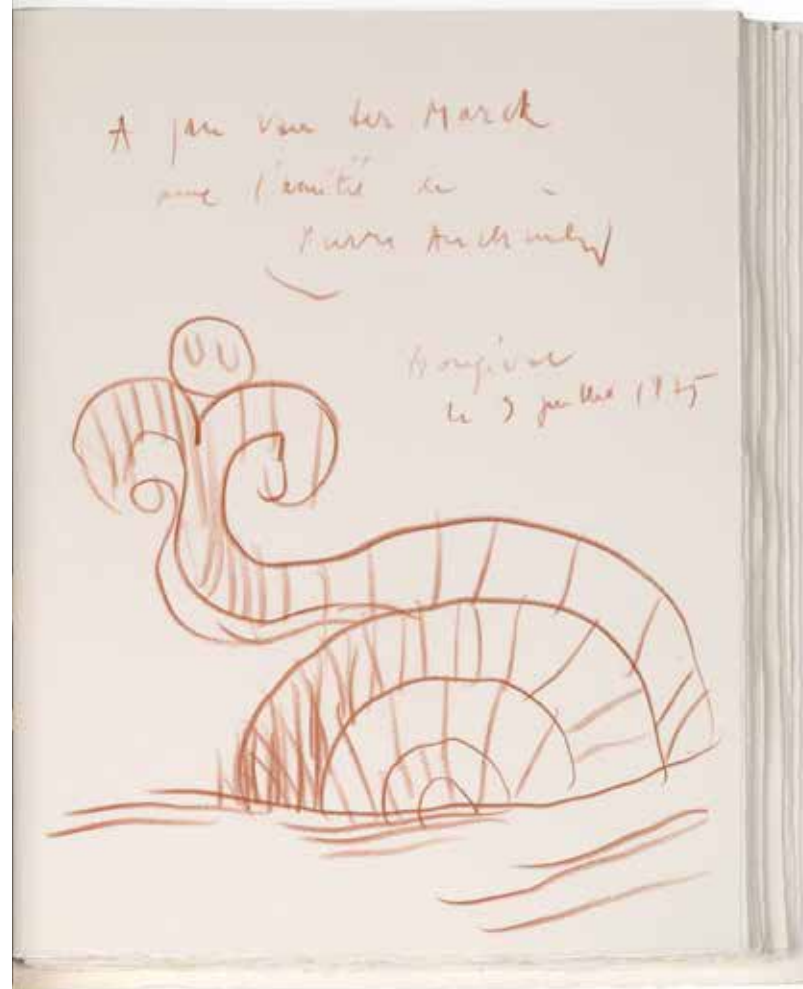 A Jan van der Marck
avec l'amitié de
Pierre Alechinsky
Bougival
le 9 juillet 1985